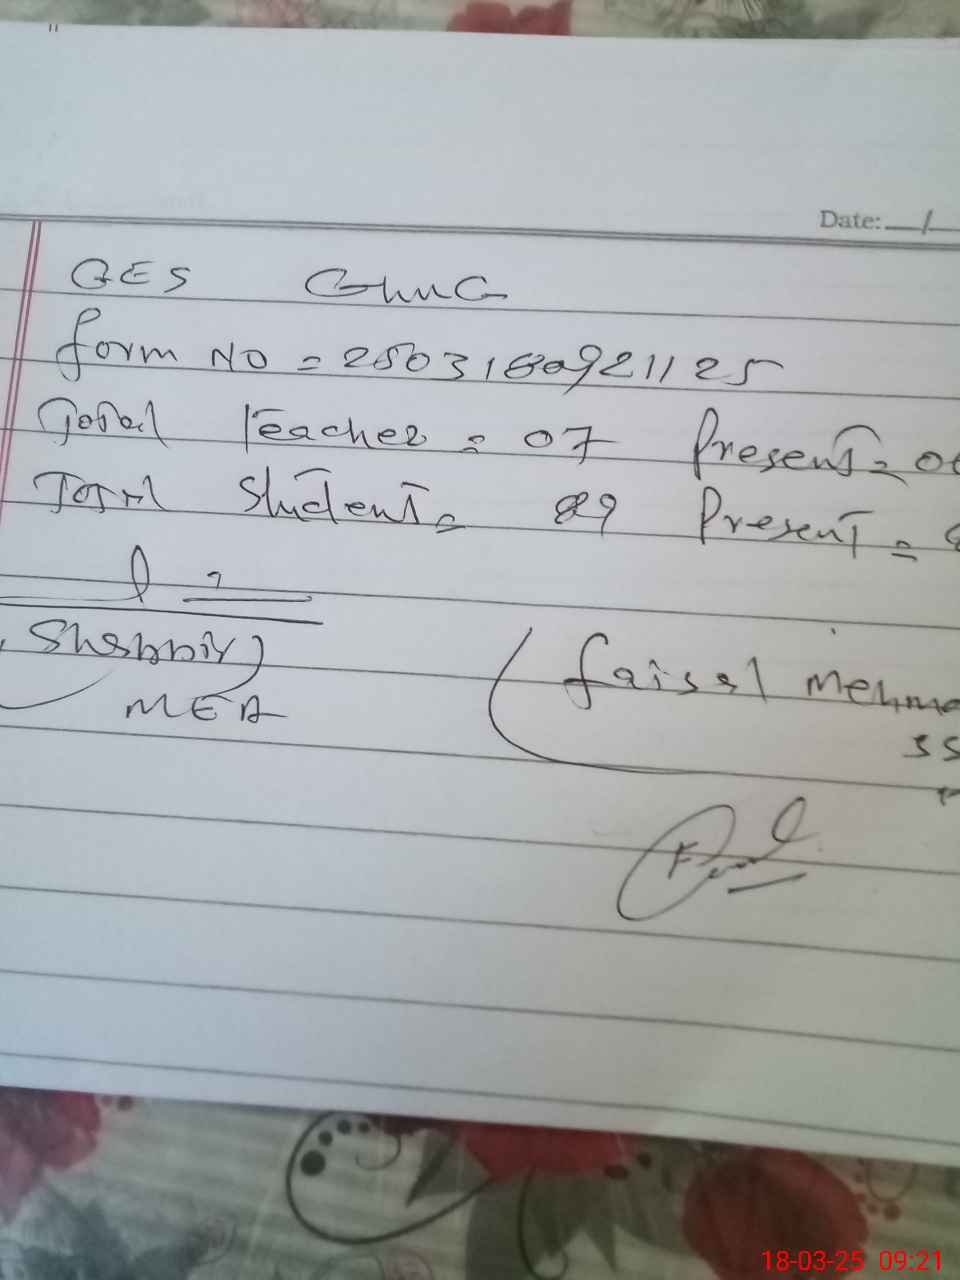 Date: __/
GES GhuG
form NO = 2503180921125
Total Teacher = 07 Present =
Total Student = 89 Present =
Shabbir)
MEA
(faisal
18-03-25 09:21